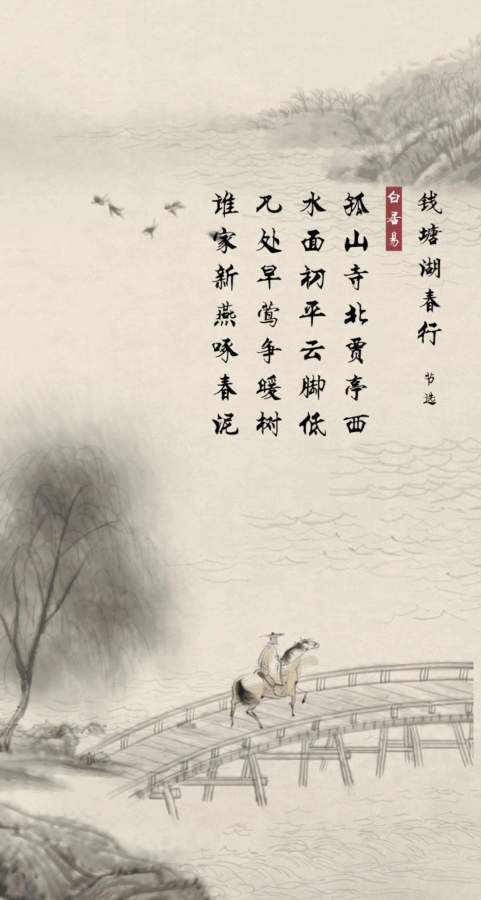 钱塘湖春行 节选
白居易
孤山寺北贾亭西
水面初平云脚低
几处早莺争暖树
谁家新燕啄春泥